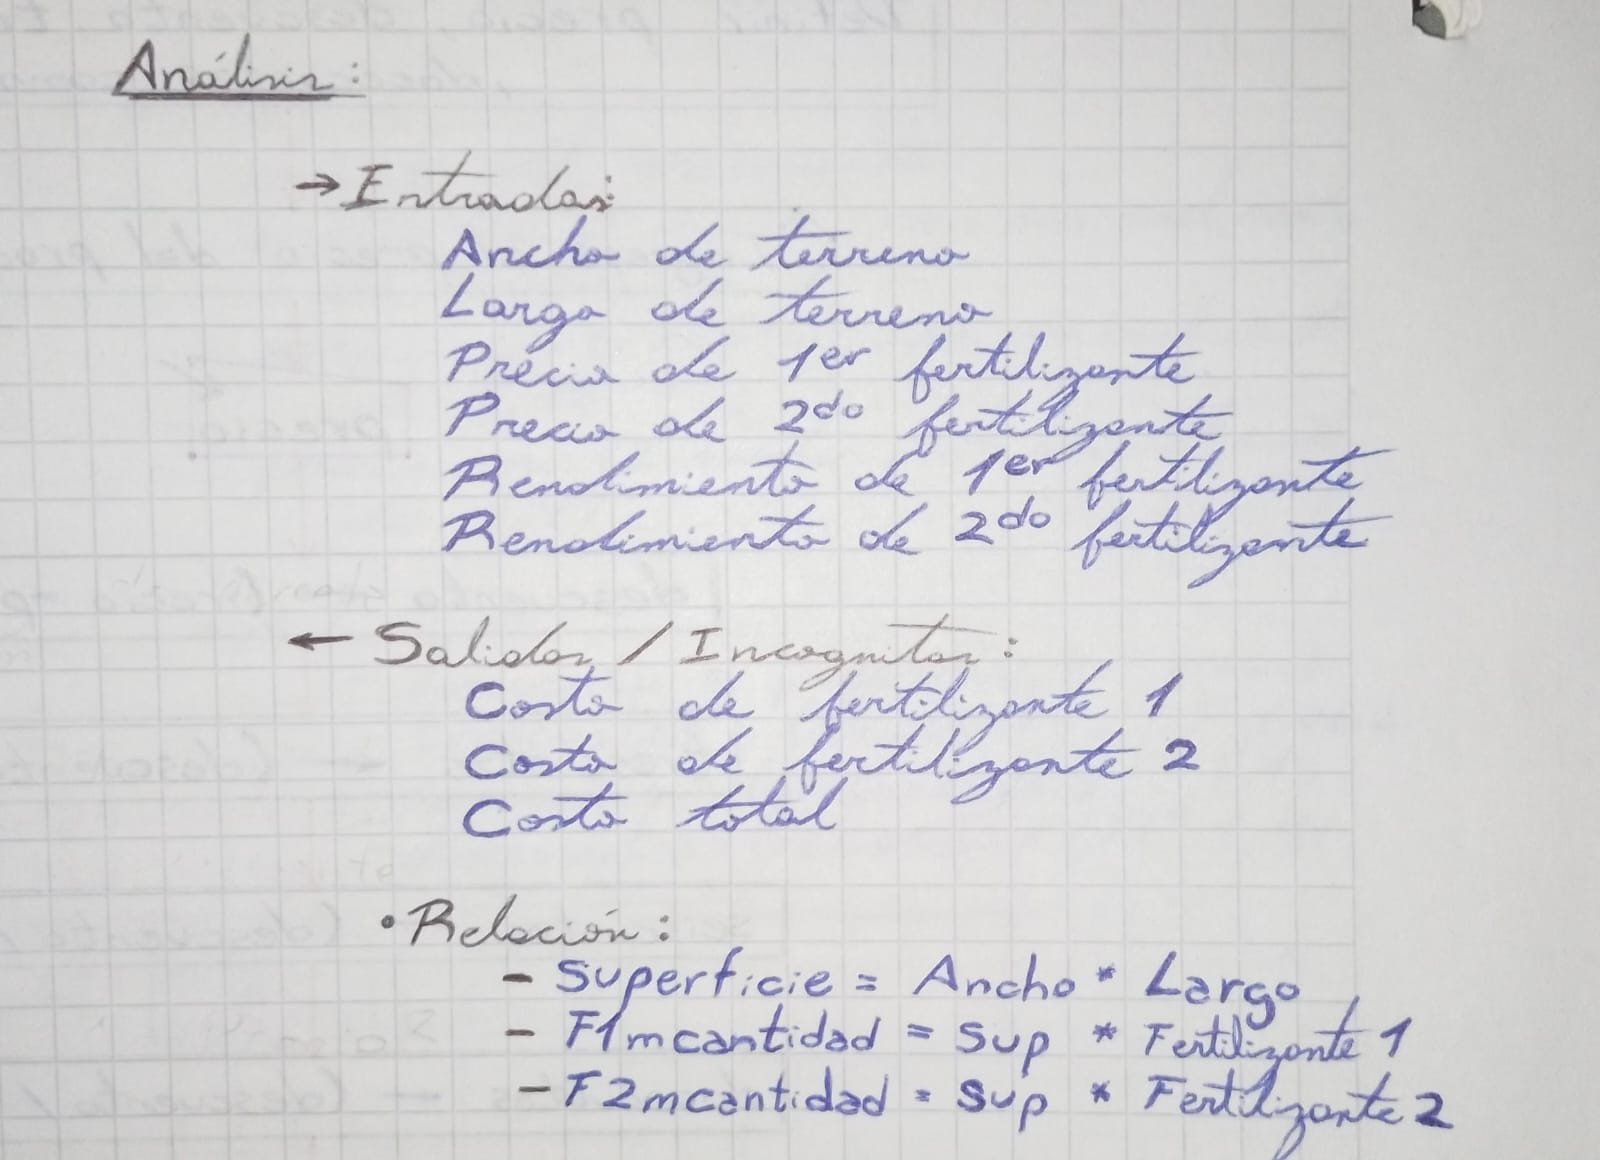 Análisis:
→ Entradas:
Ancho de terreno
Largo de terreno
Precio de 1er fertilizante
Precio de 2do fertilizante
Rendimiento de 1er fertilizante
Rendimiento de 2do fertilizante
← Salidas / Incognitas:
Costo de fertilizante 1
Costo de fertilizante 2
Costo total
• Relación:
- Superficie = Ancho * Largo
- F1mcantidad = Sup * Fertilizante 1
- F2mcantidad = Sup * Fertilizante 2